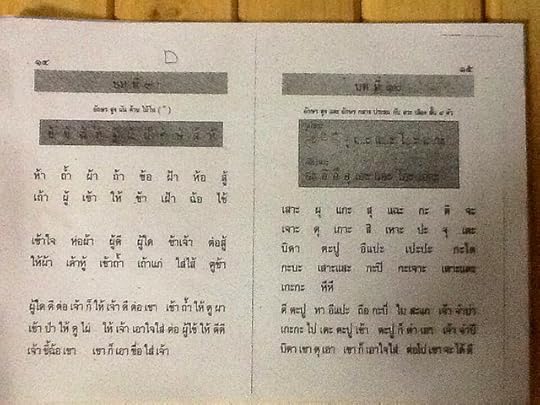 ๑๔
D
บท ที่ ๙
อักษร สูง ผัน ด้วย ไม้โท ( ้ )
ห้า ถ้ำ ผ้า ถ้า ข้อ ฝ้า ห้อ สู้
เถ้า ผู้ เข้า ให้ ข้า เฝ้า ฉ้อ ใช้
เข้าใจ ห่อผ้า ผู้ดี ผู้ใด ข้าเจ้า ต่อสู้
ให้ผ้า เต้าหู้ เข้าถ้ำ เถ้าแก่ ใส่ไส้ ตู้ข้า
ผู้ใด ดี ต่อ เจ้า ก็ ให้ เจ้า ดี ต่อ เขา เข้า ถ้ำ ให้ ดู ผา
เข้า ป่า ให้ ดู ไผ่ ให้ เจ้า เอาใจใส่ ต่อ ผู้ใช้ ให้ ดีดี
เจ้า ขี้ฉ้อ เขา เขา ก็ เอา ชื่อ ใส่ เจ้า
๑๕
บท ที่ ๑๐
อักษร สูง และ อักษร กลาง ประสม กับ สระ เสียง สั้น ๘ ตัว
เสาะ ผุ แกะ สุ แฉะ กะ ติ จะ
เจาะ ดุ เกาะ สิ เหาะ ปะ จุ เตะ
บิดา ตะปู อีแปะ เปะปะ กะได
กะบะ เสาะแสะ กะปิ กะเจาะ เสาะแตะ
เกะกะ หีหี
ตี ตะปู หา อีแปะ ถือ กะบี่ ไม สะแก เจ้า จำปา
เกะกะ ไป เตะ ตะปู เข้า ตะปู ก็ ตำ เอา เจ้า จำปี
บิดา เขา ดุ เอา เขา ก็ เอาใจใส่ ต่อไป เขา จะ ได้ ดี